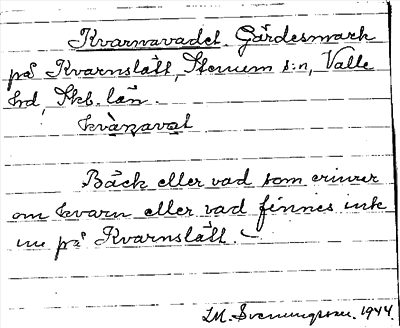 Kvarnavadet. Gärdesmark
på Kvarnslätt, Stenum s:n, Valle
hd, Skb. län.
kvànavat
Bäck eller vad som erinrar
om kvarn eller vad finnes inte
nu på Kvarnslätt.
M. Svenungsson. 1944.